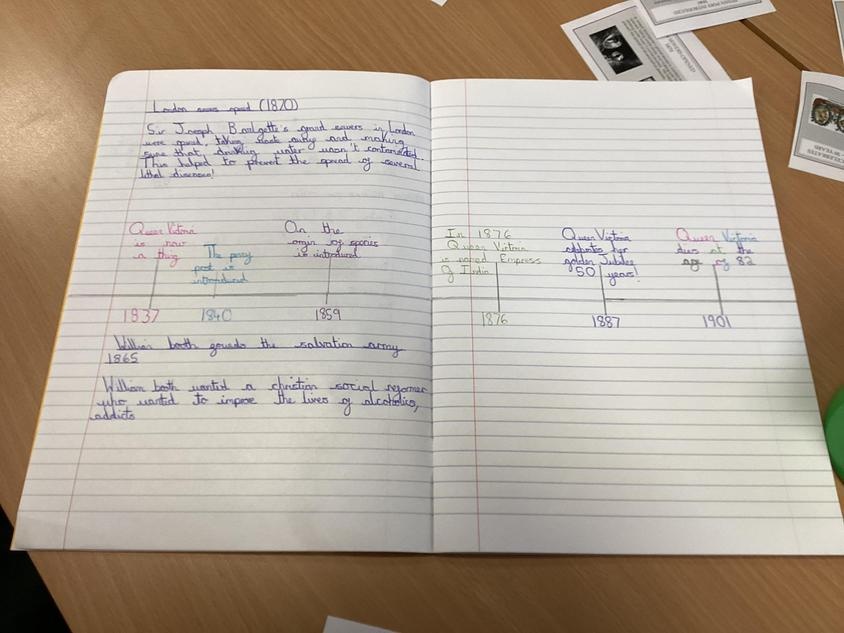 London sewers opened (1870)
Sir Joseph Bazlgette's grand sewers in London
were opened, taking waste away and making
sure that drinking water wasn't contaminated.
This helped to prevent the spread of several
lethal diseases!
Queen Victoria
is now
a thing
The penny
post is
introduced
On the
origin of species
is introduced
1837
1840
1859
William booth founds the salvation army
1865
William booth wanted a christian social reformer
who wanted to improve the lives of alcoholics,
addicts
In 1876
Queen Victoria
is named Empress
of India
Queen Victoria
celebrates her
golden Jubilee
50 years!
Queen Victoria
dies at the
age of 82
1876
1887
1901